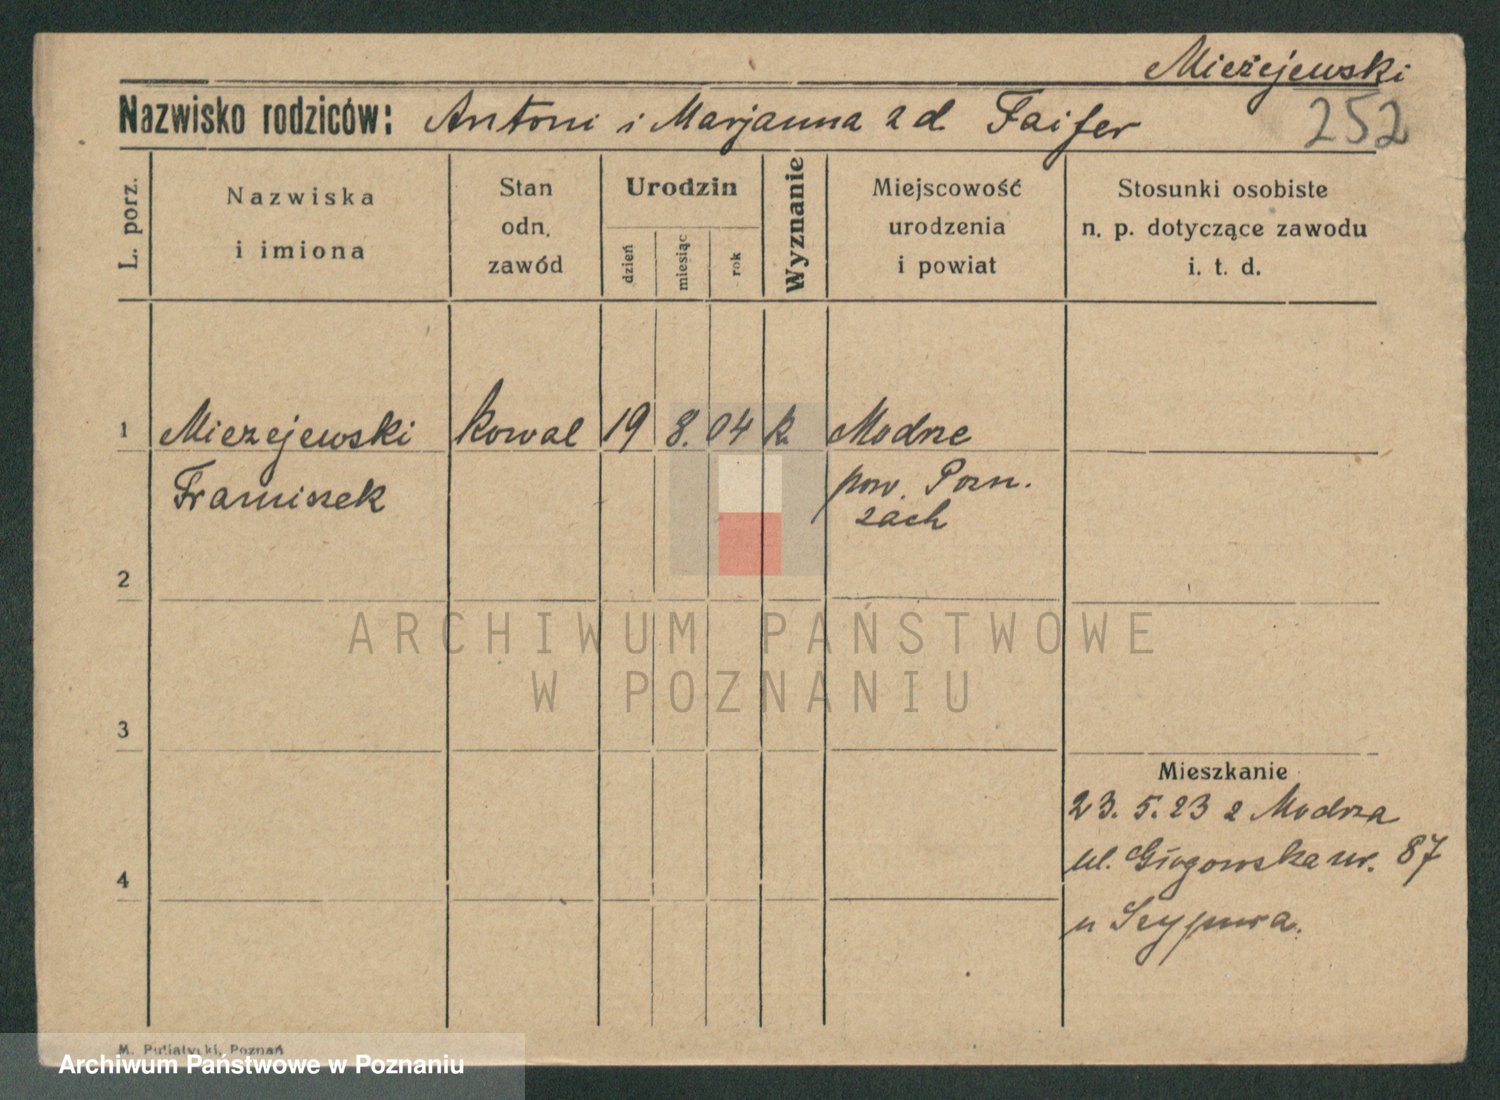 Mieżejewski
Nazwisko rodziców: Antoni i Marjanna zd Faifer 252
L. porz.
Nazwiska
i imiona
Stan
odn.
zawód
Urodzin
dzień
miesiąc
rok
Wyznanie
Miejscowość
urodzenia
i powiat
Stosunki osobiste
n. p. dotyczące zawodu
i. t. d.
1 Mieżejewski kowal 19 8. 04 k. Modrze
Franciszek pow. Pozn.
zach
2
3
4
Mieszkanie
23. 5. 23 z Modrza
ul. Głogowska nr. 87
u
ARCHIWUM PAŃSTWOWE
W POZNANIU
M. Putiatycki, Poznań
Archiwum Państwowe w Poznaniu